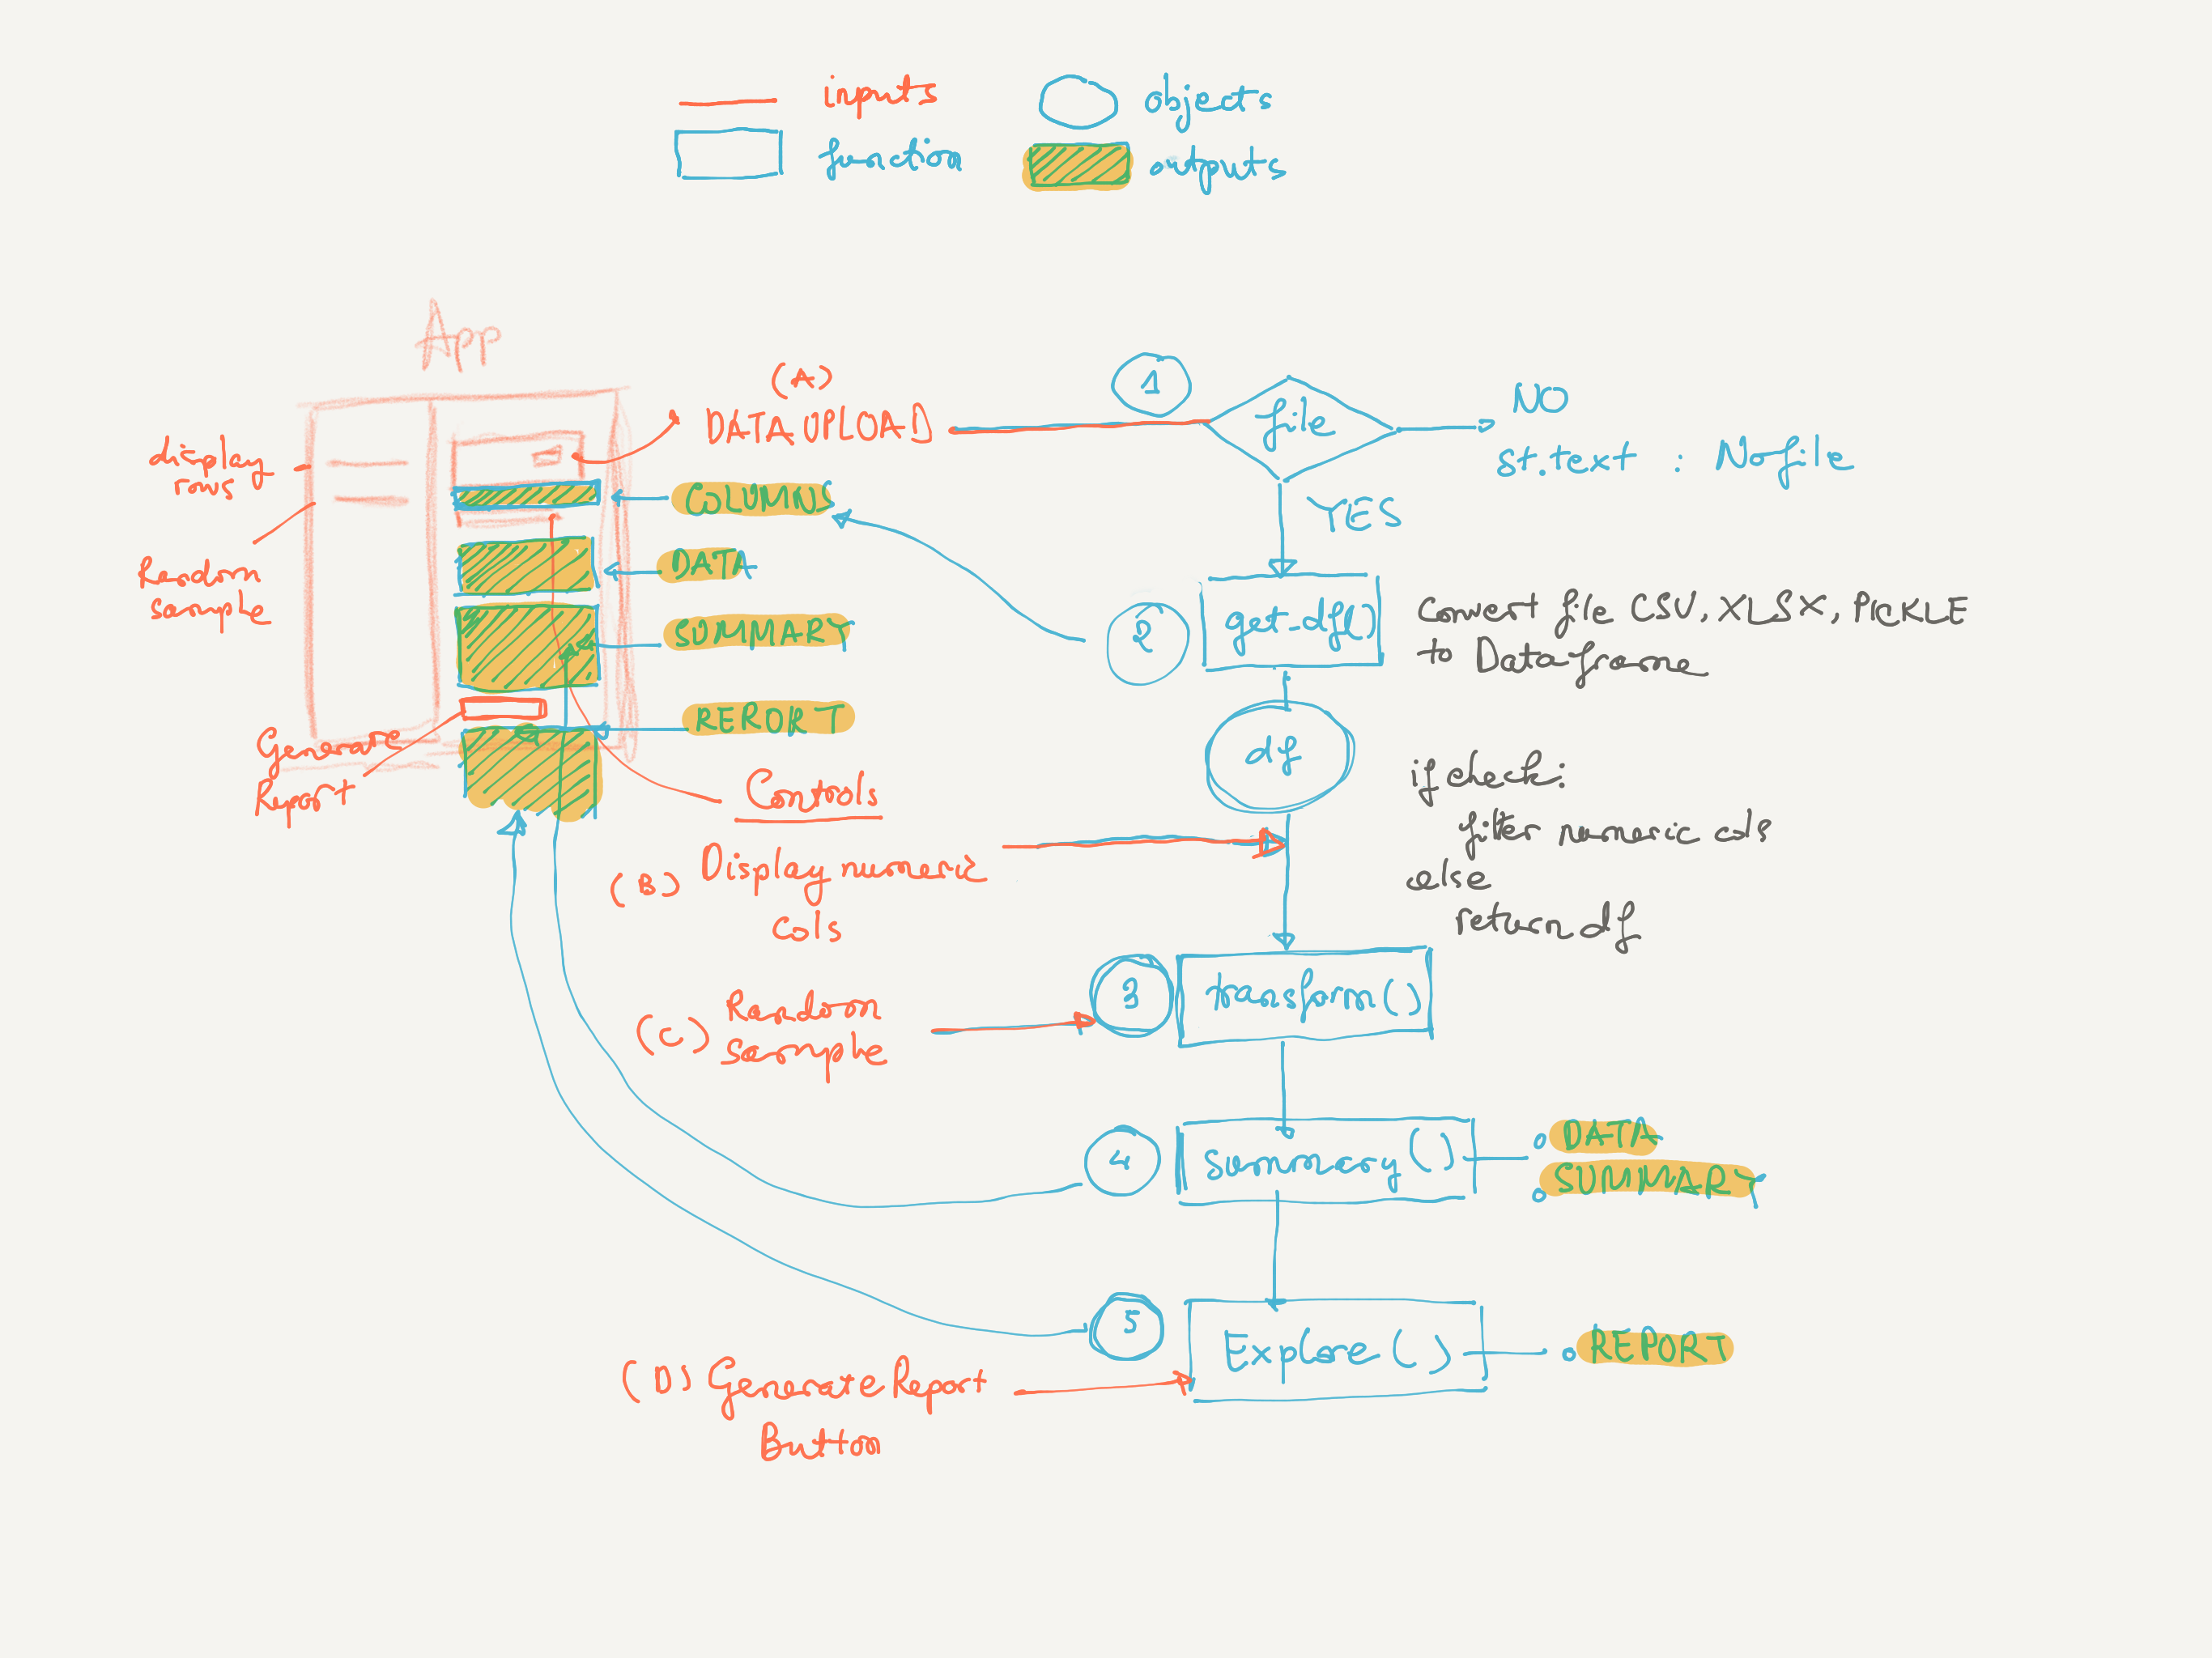 inputs
function
objects
outputs
App
display
rows
Random
sample
Generate
Report
(A)
DATA UPLOAD
COLUMNS
DATA
SUMMARY
REPORT
Controls
(B) Display numeric
cols
(C) Random
sample
(D) Generate Report
Button
1
file
NO
st.text : No file
YES
2
get_df()
Convert file CSV, XLSX, PICKLE
to Dataframe
df
if check:
filter numeric cols
else
return df
3
transform()
4
Summary()
DATA
SUMMARY
5
Explore()
REPORT